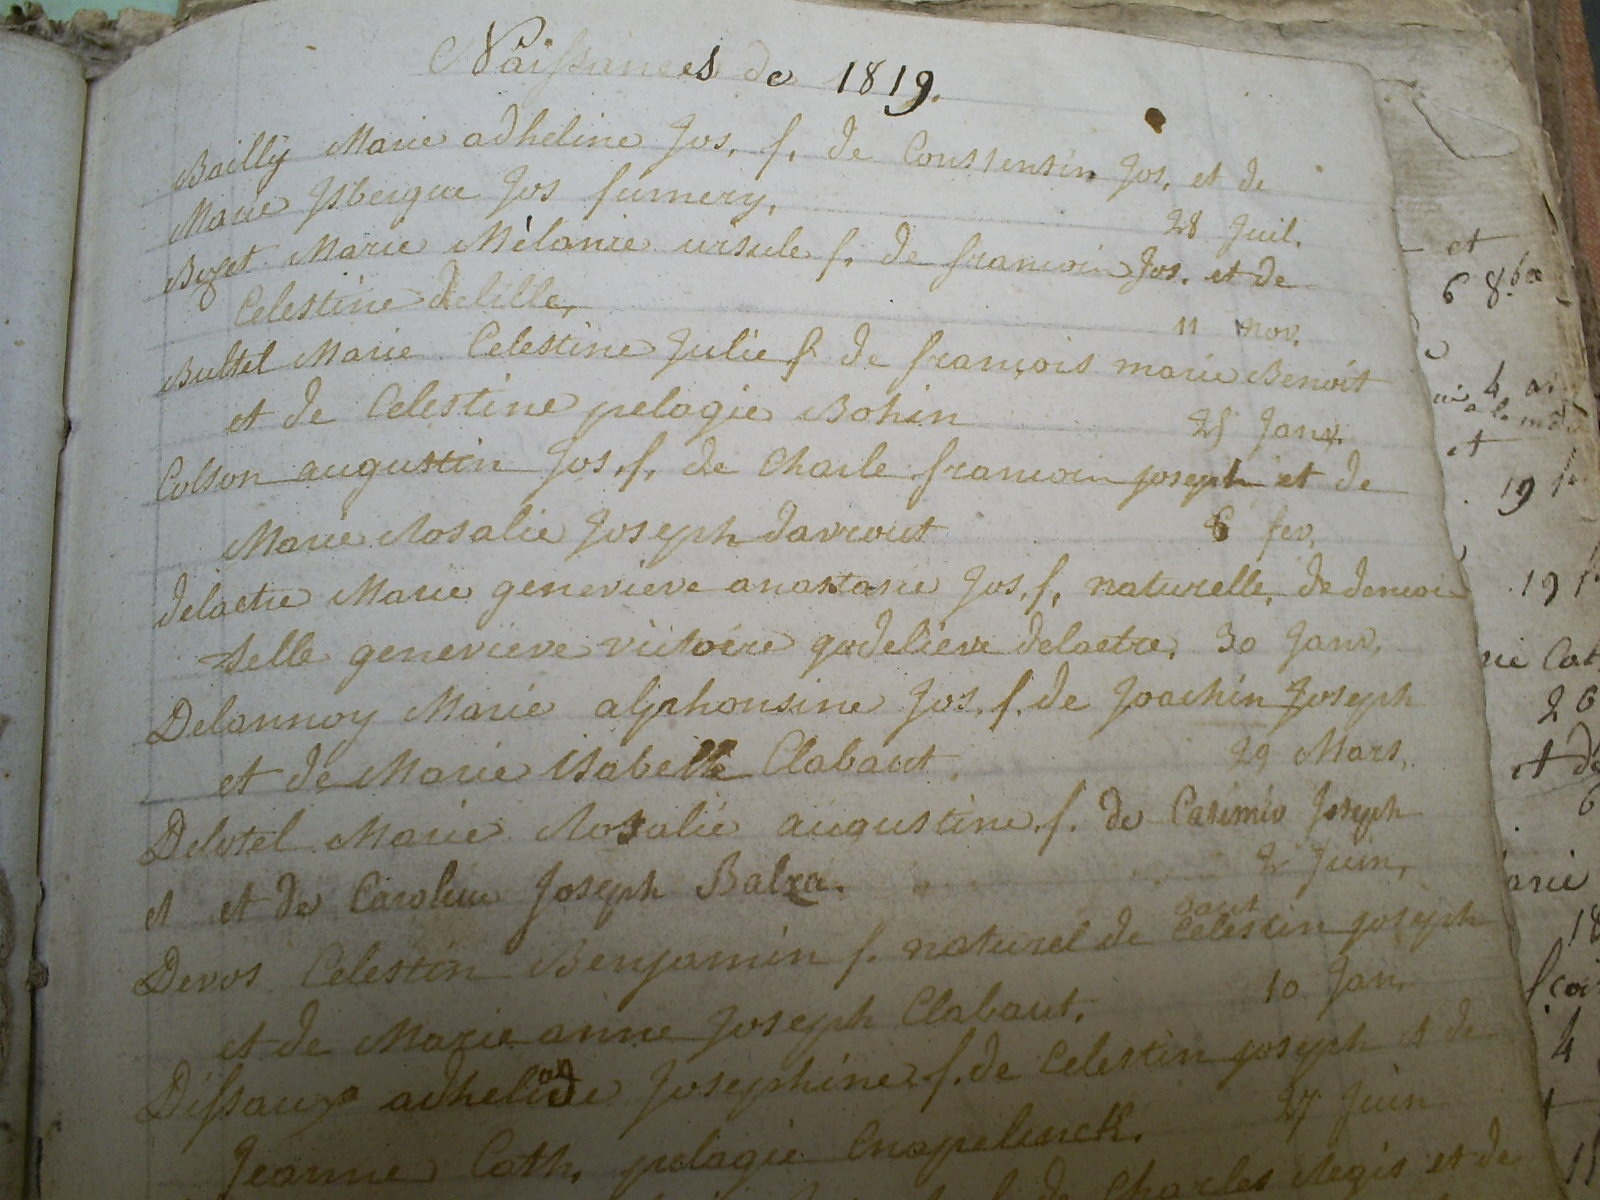 Naissances de 1819.
Bailly Marie adheline Jos. f. de Constentin Jos. et de
Marie Isbergue Jos fumery. 28 Juil.
Buset Marie Mélanie ursule f. de francoin Jos. et de
Celestine delille, 11 nov.
Bultel Marie Celestine Julie f de françois marie Benoit
et de Celestine pelagie Bohin 25 Janv.
Colson augustin Jos. f. de Charle francoin joseph et de
Marie Rosalie Joseph davrout 6 fev.
delaetre Marie genevieve anastasie Jos. f. naturelle de demoi
selle genevieve victoire godelieve delaetre. 30 Janv.
Delannoy Marie alphonsine Jos. f. de Joachin Joseph
et de Marie isabelle Clabaut. 29 Mars,
Delotel Marie Rosalie augustine f. de Casimir Joseph
et et de Caroline Joseph Balza. 2 Juin,
Devos Celestin Benjamin f. naturel de Celestin joseph
et de Marie anne Joseph Clabaut. 10 Jan.
Dissaux Josephine f. de Celestin joseph et de
Jeanne Cath. pelagie Cnapelinck. 27 Juin
de Charles Regis et de